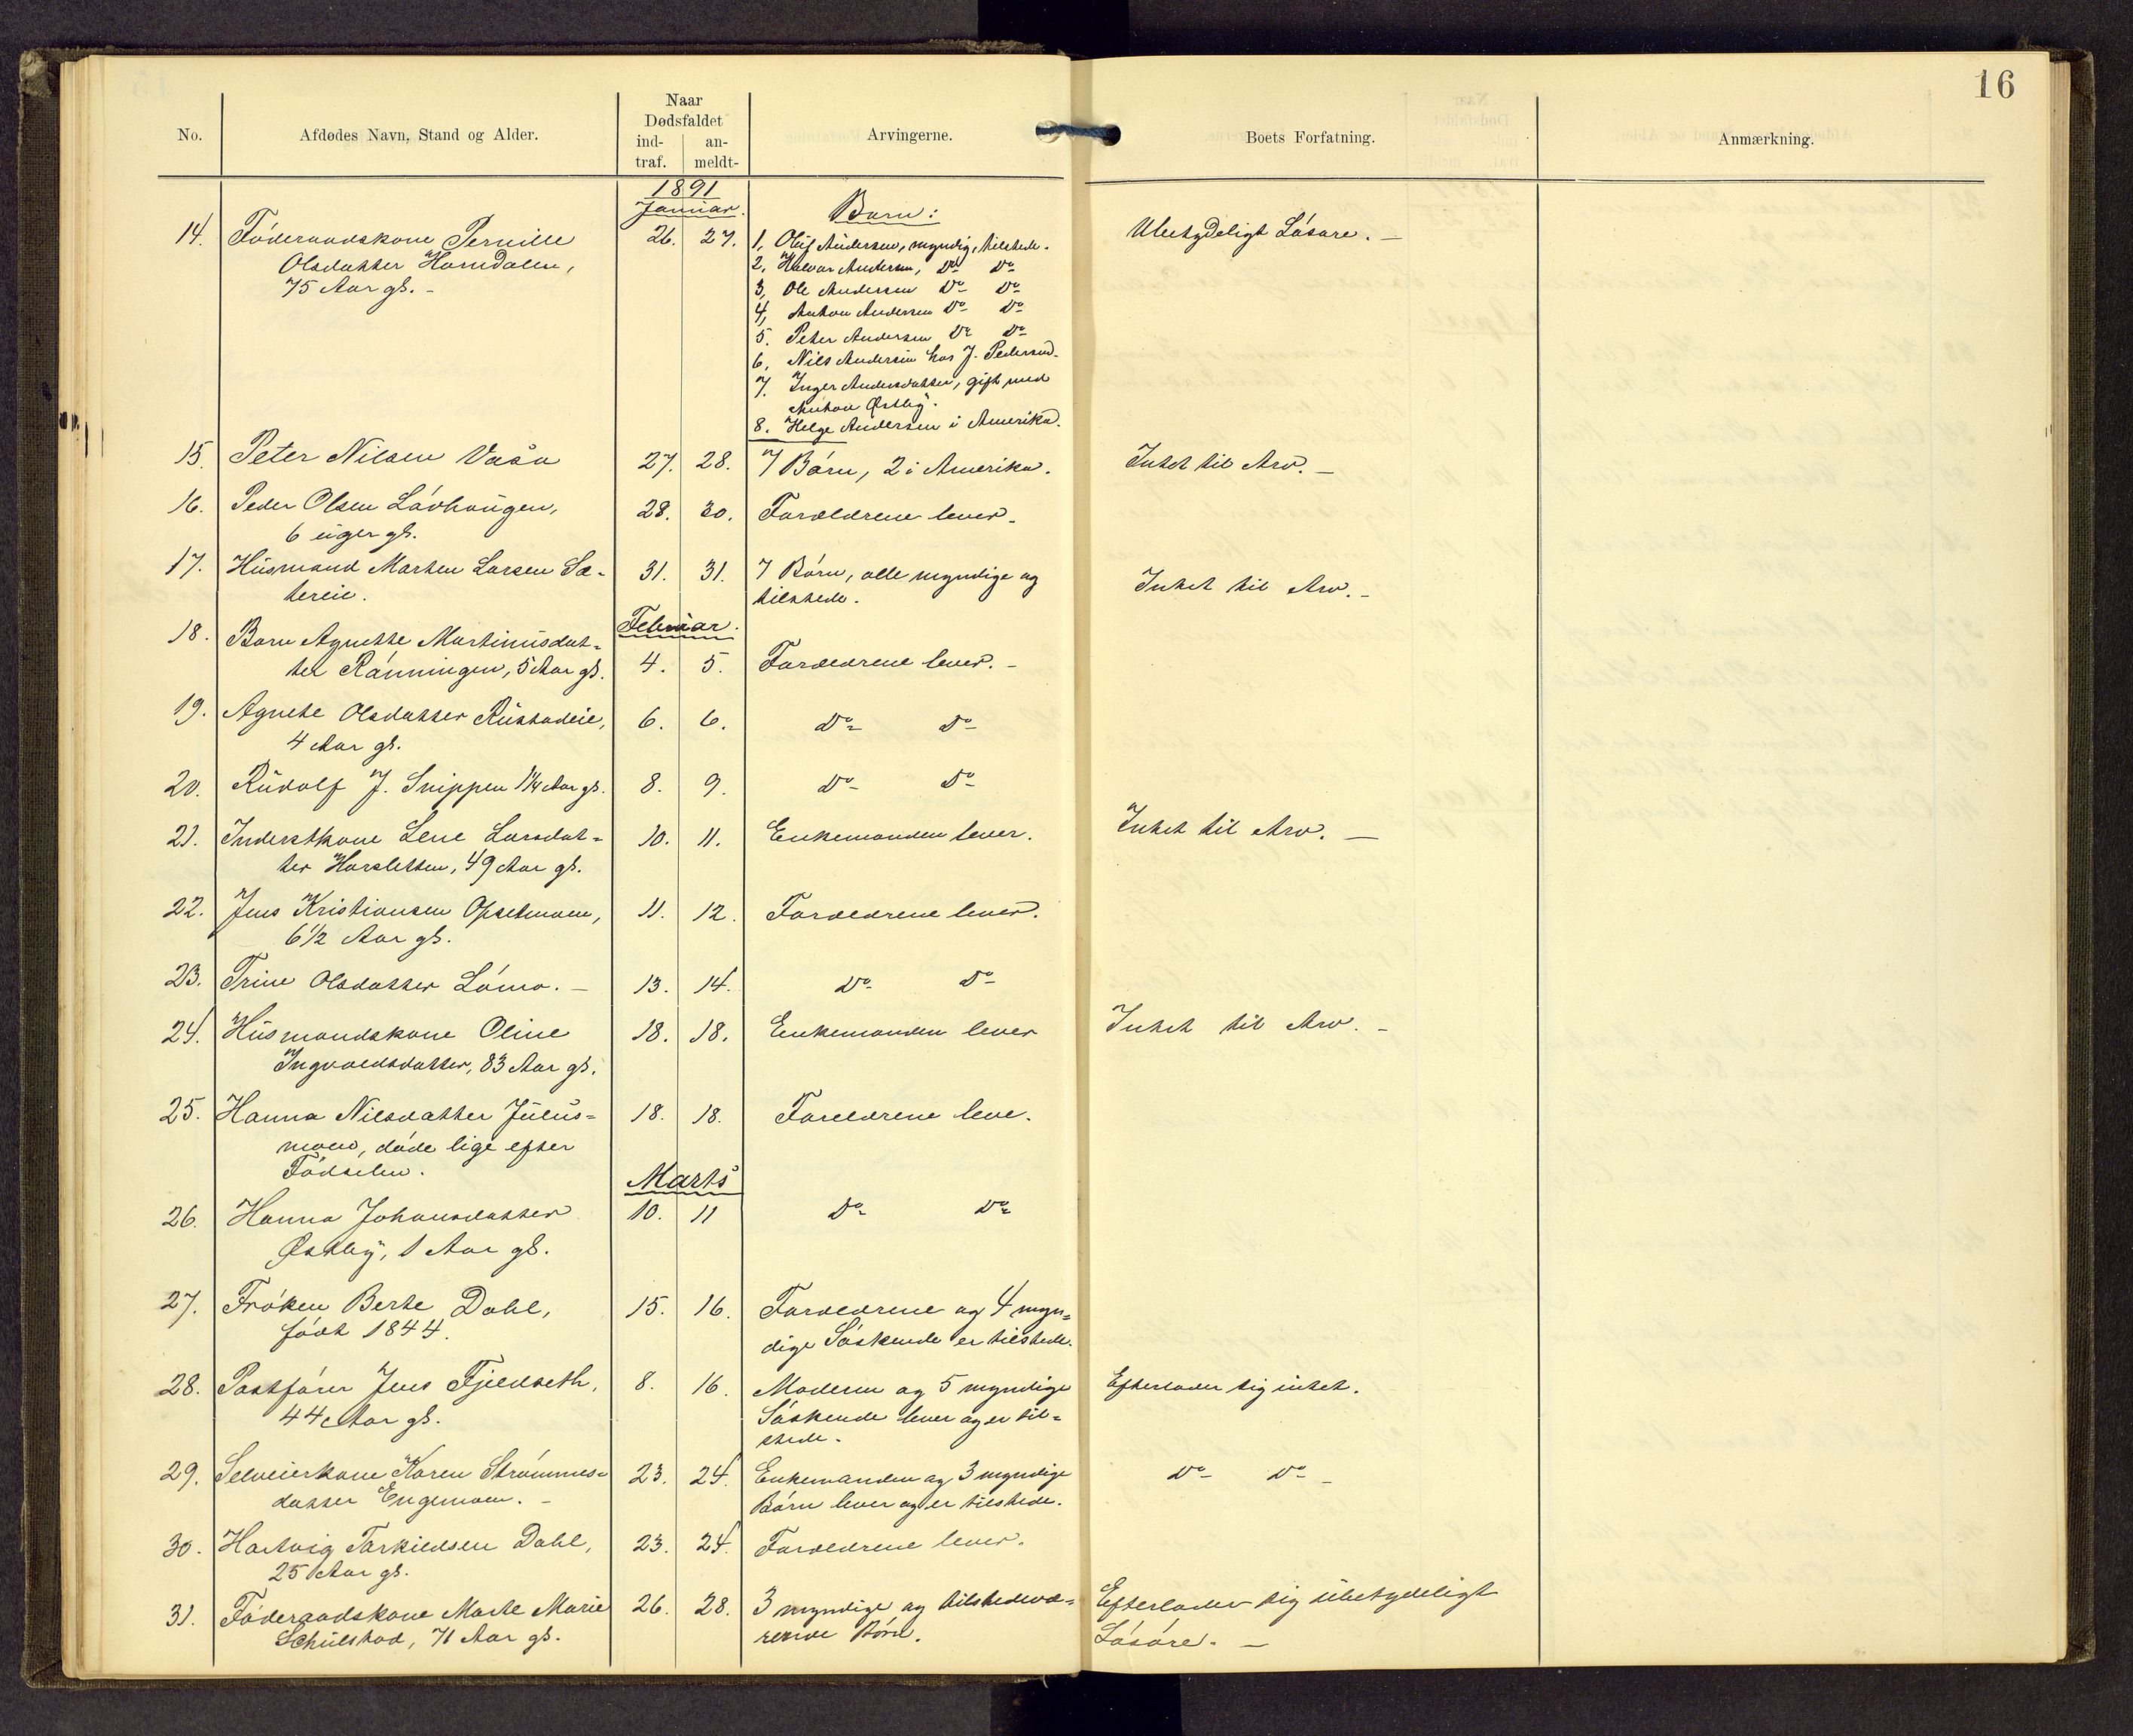 16
No. Afdødes Navn, Stand og Alder. Naar Dødsfaldet Arvingerne. Boets Forfatning. Anmærkning.
ind- an-
traf. meldt-
1891
Januar. Børn:
14. Føderaadskone Pernille 26. 27. 1, Oluf Andersen, myndig, tilstede. Ubetydeligt Løsøre. -
Olsdatter Horndalen, 2, Halvor Andersen, Do Do
75 Aar gl. - 3, Ole Andersen Do Do
4, Anton Andersen Do Do
5. Peter Andersen Do Do
6, Nils Andersen hos J. Pedersen.
7. Inger Andersdatter, gift med
Anton Østby.
8. Helge Andersen i Amerika.
15. Peter Nilsen Vaåa 27. 28. 7 Børn, 2 i Amerika. Intet til Arv. -
16. Peder Olsen Løvhaugen, 28. 30. Forældrene lever.
6 uger gl.
17. Husmand Morten Larsen Sæ- 31. 31. 7 Børn, alle myndige og Intet til Arv. -
tereie. tilstede.
Februar.
18. Barn Agnethe Martinusdat-
ter Rønningen, 5 Aar gl. 4. 5. Forældrene lever. -
19. Agnete Olsdatter Rustadeie, 6. 6. Do Do
4 Aar gl.
20. Rudolf J. Snippen 1 1/4 Aar gl. 8. 9. Do Do
21. Inderstkone Lene Larsdat- 10. 11. Enkemanden lever. Intet til Arv. -
ter Horsletten, 49 Aar gl.
22. Jens Kristiansen Opsetmoen, 11. 12. Forældrene lever.
6 1/2 Aar gl.
23. Trine Olsdatter Lømo. - 13. 14. Do Do
24. Husmandskone Oline 18. 18. Enkemanden lever Intet til Arv. -
Ingvoldsdatter, 83 Aar gl.
25. Hanna Nilsdatter Julus- 18. 18. Forældrene leve.
moen, døde lige efter
Fødselen.
Marts
26. Hanna Johansdatter 10. 11 Do Do
Østby, 1 Aar gl.
27. Frøken Berte Dahl, 15. 16. Forældrene og 4 myn-
født 1844. dige Søskende er tilstede.
28. Postfører Jens Fjeldseth, 8. 16. Moderen og 5 myndige Efterlader sig intet.
44 Aar gl. Søskende lever og er til-
stede.
29. Selveierkone Karen Strømmes- 23. 24. Enkemanden og 3 myndige Do Do -
datter Engemoen. - Børn lever og er tilstede.
30. Hartvig Torkildsen Dahl, 23. 24. Forældrene lever.
25 Aar gl.
31. Føderaadskone Marte Marie 26. 28. 3 myndige og tilstedevæ- Efterlader sig ubetydeligt
Schulstad, 71 Aar gl. rende Børn. Løsøre. -